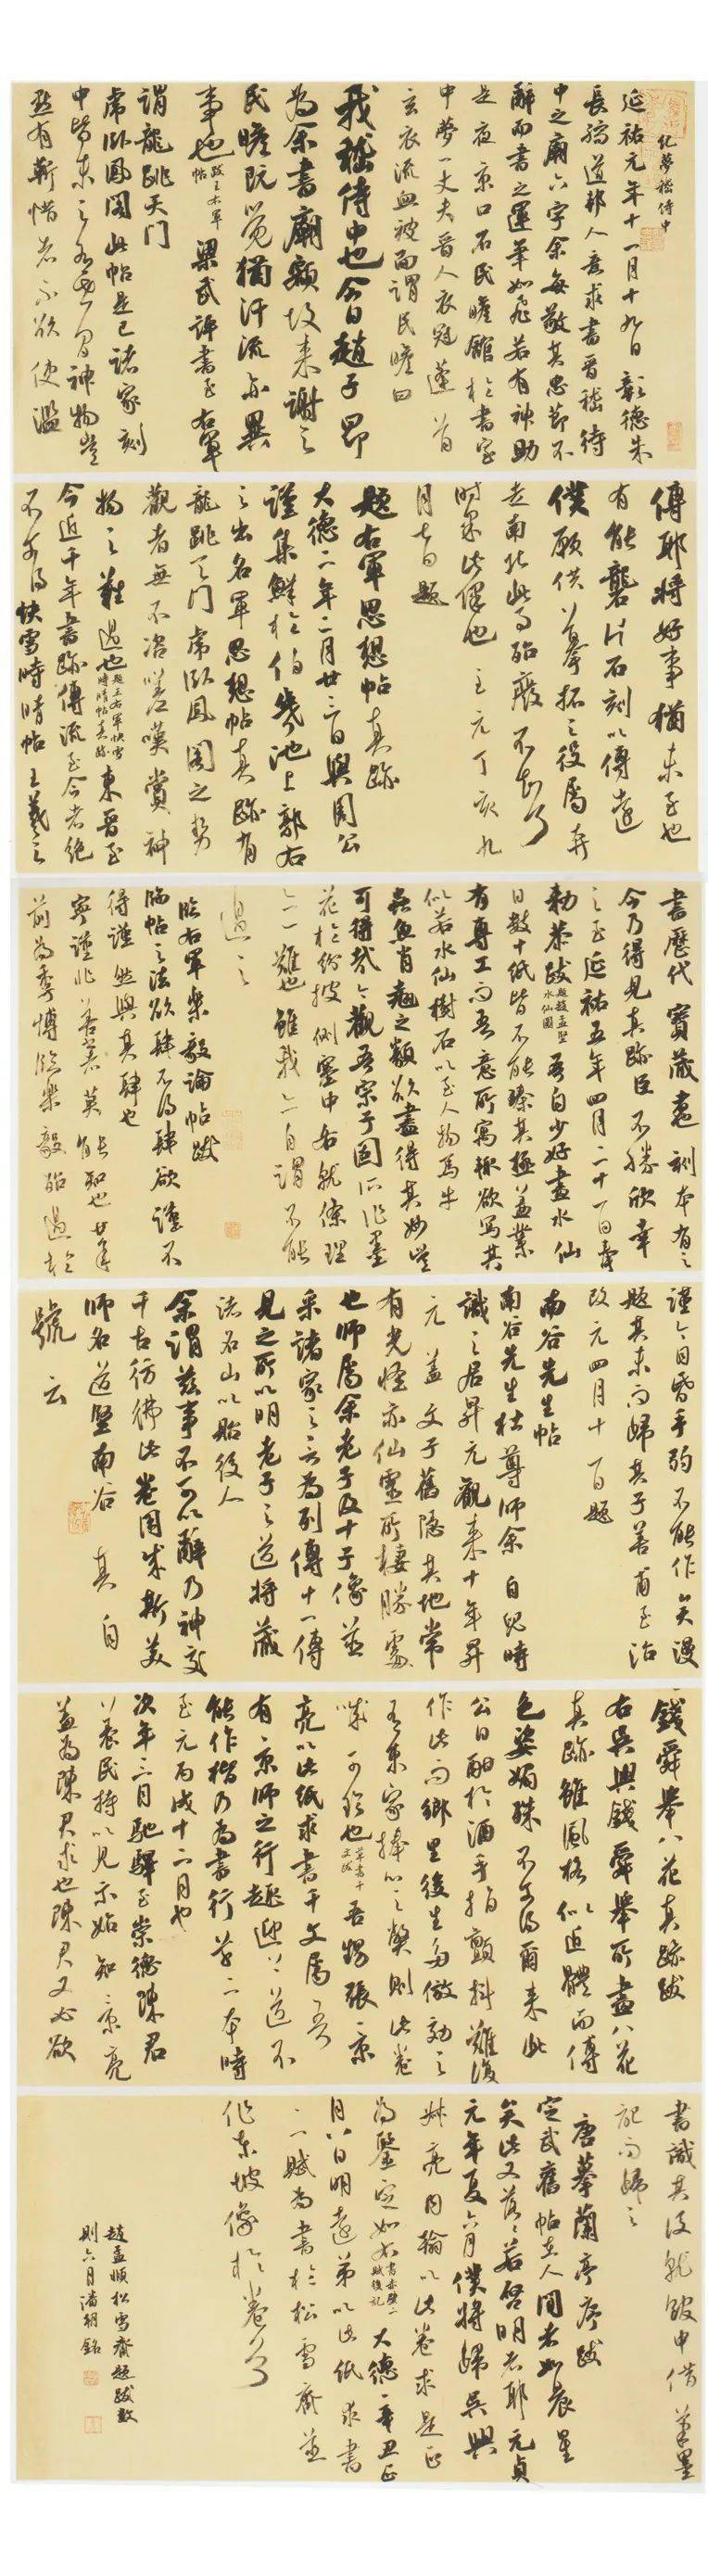 纪夢嵇侍中
延祐元年十一月十九日彰德朱
長孺道邦人意求書晋嵇侍
中之廟六字余每敬其忠節不
辭而書之運筆如飛若有神助
是夜京口石民瞻館於書室
中夢一丈夫晋人衣冠蓬首
玄衣流血被面謂民瞻曰
我嵇侍中也今日趙子昂
為余書廟額故来謝之
民瞻既覺猶汗流亦異
事也跋王右軍帖梁武評書至右軍
謂龍跳天門
虎卧鳳閣此帖是已諸家刻
中皆未之見豈神物豈
然有靳惜者不欲使濫
傳耶将好事猶未至也
有能礱片石刻以傳遠
僕願供摹拓之役屬奔
走南北此事殆廢不知何
时果此緣也至元丁亥九
月七日題
題右軍思想帖真跡
大德二年二月廿三日與周公
謹集鮮于伯幾池上郭右
之出右軍思想帖真跡有
龍跳天門虎卧鳳閣之势
觀者無不咨嗟嘆賞神
物之難遇也題王右軍快雪時晴帖真跡東晋至
今近千年書跡傳流至今者絶
不可得快雪時晴帖王羲之
書歷代寳藏者也刻本有之
今乃得見真跡臣不勝欣幸
之至延祐五年四月二十一日奉
勅恭跋題趙孟堅水仙圖吾自少好畫水仙
日数十紙皆不能臻其極蓋業
有專工而吾意所寓輒欲寫其
似若水仙樹石以至人物馬牛
蟲魚肖翹之類欲盡得其妙豈
可得哉今觀吾宗子固所作墨
花於纷披側塞中各就條理
亦一難也雖我亦自謂不能
過之
臨右軍樂毅論帖跋
临帖之法欲肆不得肆欲謹不
得謹然與其肆也
寧謹非善書者莫能知也廿年
前為季博臨樂毅殆過於
謹今目昏手弱不能作矣漫
題其末而歸其子善甫至治
改元四月十一日題
南谷先生帖
南谷先生杜尊师余自兒時
識之居昇元觀来十年昇
元蓋文子舊隱其地常
有光怪亦仙靈所棲勝處
也師屬余老子及十子像並
采諸家之言為列傳十一傳
見之所以明老子之道將藏
诸名山以貽後人
余謂兹事不可以辭乃神交
千古彷彿此卷用成斯美
師名道堅南谷其自
號云
錢舜舉八花真跡跋
右吴興錢舜舉所畫八花
真跡雖風格似近體而傅
色姿媚殊不可得爾来此
公日酣於酒手指顫抖難復
作此而鄉里後生多倣效之
吾東家捧心之獘則此卷
誠可珍也吾甥張景
亮以此纸求書千文屬吾
有京师之行趣迎上道不
能作楷乃為書行草二本時
至元丙戌十二月也
次年二月馳驛至崇德陳君
以養民持以見示始知景亮
盖為陳君求也陳君又必欲
書識其後就館中借筆墨
記而歸之
唐摹蘭亭序跋
定武舊帖在人間者如晨星
矣此又落落若啓明者耶元貞
元年夏六月僕將歸吴興
叔亮内翰以此卷求是正
為鑒定如右書赤壁二賦後記大德辛丑正
月八日明遠弟以此纸求書
二賦為書於松雪齋並
作东坡像於卷首
趙孟頫松雪齋題跋數
則六月潘朝銘